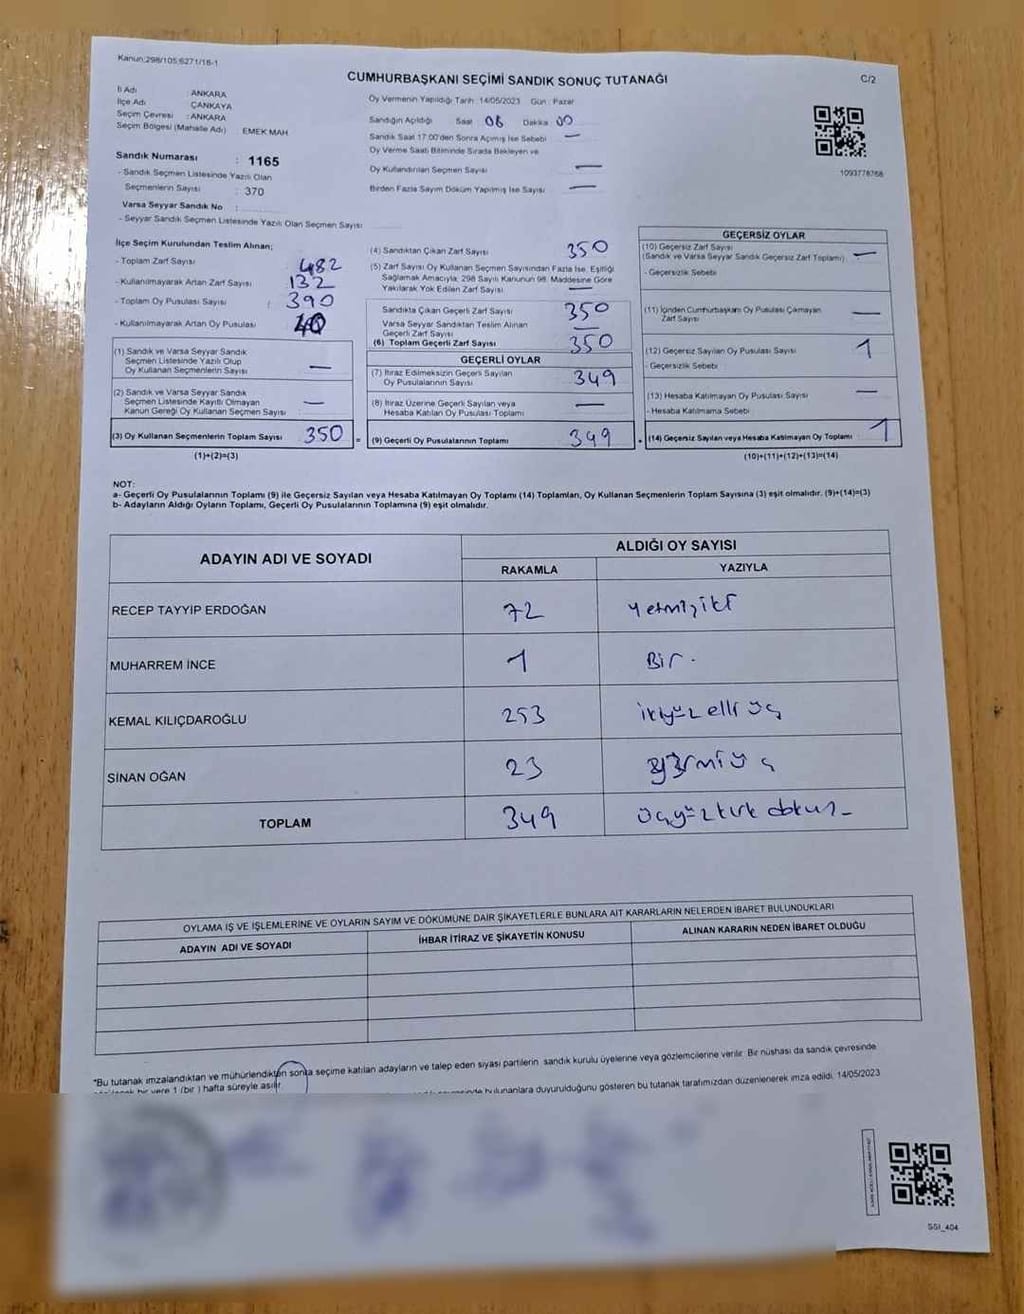 Kanun:298/105;6271/16-1
CUMHURBAŞKANI SEÇİMİ SANDIK SONUÇ TUTANAĞI
C/2
İl Adı : ANKARA
İlçe Adı : ÇANKAYA
Seçim Çevresi : ANKARA
Seçim Bölgesi (Mahalle Adı) EMEK MAH
Oy Vermenin Yapıldığı Tarih :14/05/2023 Gün : Pazar
Sandığın Açıldığı Saat 08 Dakika 00
Sandık Saat 17:00'den Sonra Açılmış İse Sebebi —
Oy Verme Saati Bitiminde Sırada Bekleyen ve
Oy Kullandırılan Seçmen Sayısı —
Birden Fazla Sayım Döküm Yapılmış İse Sayısı —
1093778768
Sandık Numarası : 1165
- Sandık Seçmen Listesinde Yazılı Olan
Seçmenlerin Sayısı : 370
Varsa Seyyar Sandık No :
- Seyyar Sandık Seçmen Listesinde Yazılı Olan Seçmen Sayısı
İlçe Seçim Kurulundan Teslim Alınan;
- Toplam Zarf Sayısı 482
- Kullanılmayarak Artan Zarf Sayısı 132
- Toplam Oy Pusulası Sayısı : 390
- Kullanılmayarak Artan Oy Pusulası 40
(1) Sandık ve Varsa Seyyar Sandık
Seçmen Listesinde Yazılı Olup
Oy Kullanan Seçmenlerin Sayısı —
(2) Sandık ve Varsa Seyyar Sandık
Seçmen Listesinde Kayıtlı Olmayan
Kanun Gereği Oy Kullanan Seçmen Sayısı —
(3) Oy Kullanan Seçmenlerin Toplam Sayısı 350 =
(1)+(2)=(3)
(4) Sandıktan Çıkan Zarf Sayısı 350
(5) Zarf Sayısı Oy Kullanan Seçmen Sayısından Fazla İse, Eşitliği
Sağlamak Amacıyla; 298 Sayılı Kanunun 98. Maddesine Göre
Yakılarak Yok Edilen Zarf Sayısı —
Sandıkta Çıkan Geçerli Zarf Sayısı 350
Varsa Seyyar Sandıktan Teslim Alınan
Geçerli Zarf Sayısı —
(6) Toplam Geçerli Zarf Sayısı 350
GEÇERLİ OYLAR
(7) İtiraz Edilmeksizin Geçerli Sayılan
Oy Pusulalarının Sayısı 349
(8) İtiraz Üzerine Geçerli Sayılan veya
Hesaba Katılan Oy Pusulası Toplamı —
(9) Geçerli Oy Pusulalarının Toplamı 349
GEÇERSİZ OYLAR
(10) Geçersiz Zarf Sayısı
(Sandık ve Varsa Seyyar Sandık Geçersiz Zarf Toplamı) —
- Geçersizlik Sebebi
(11) İçinden Cumhurbaşkanı Oy Pusulası Çıkmayan
Zarf Sayısı —
(12) Geçersiz Sayılan Oy Pusulası Sayısı 1
- Geçersizlik Sebebi
(13) Hesaba Katılmayan Oy Pusulası Sayısı —
- Hesaba Katılmama Sebebi
(14) Geçersiz Sayılan veya Hesaba Katılmayan Oy Toplamı 1
(10)+(11)+(12)+(13)=(14)
NOT:
a- Geçerli Oy Pusulalarının Toplamı (9) ile Geçersiz Sayılan veya Hesaba Katılmayan Oy Toplamı (14) Toplamları, Oy Kullanan Seçmenlerin Toplam Sayısına (3) eşit olmalıdır. (9)+(14)=(3)
b- Adayların Aldığı Oyların Toplamı, Geçerli Oy Pusulalarının Toplamına (9) eşit olmalıdır.
ADAYIN ADI VE SOYADI
ALDIĞI OY SAYISI
RAKAMLA YAZIYLA
RECEP TAYYİP ERDOĞAN 72 Yetmişiki
MUHARREM İNCE 1 Bir.
KEMAL KILIÇDAROĞLU 253 ikiyüz elli üç
SİNAN OĞAN 23 yirmi üç
TOPLAM 349 üçyüz kırk dokuz
OYLAMA İŞ VE İŞLEMLERİNE VE OYLARIN SAYIM VE DÖKÜMÜNE DAİR ŞİKAYETLERLE BUNLARA AİT KARARLARIN NELERDEN İBARET BULUNDUKLARI
ADAYIN ADI VE SOYADI İHBAR İTİRAZ VE ŞİKAYETİN KONUSU ALINAN KARARIN NEDEN İBARET OLDUĞU
*Bu tutanak imzalandıktan ve mühürlendikten sonra seçime katılan adayların ve talep eden siyasi partilerin sandık kurulu üyelerine veya gözlemcilerine verilir. Bir nüshası da sandık çevresinde
bir yere 1 (bir) hafta süreyle asılır
bulunanlara duyurulduğunu gösteren bu tutanak tarafımızdan düzenlenerek imza edildi. 14/05/2023
SSI_404